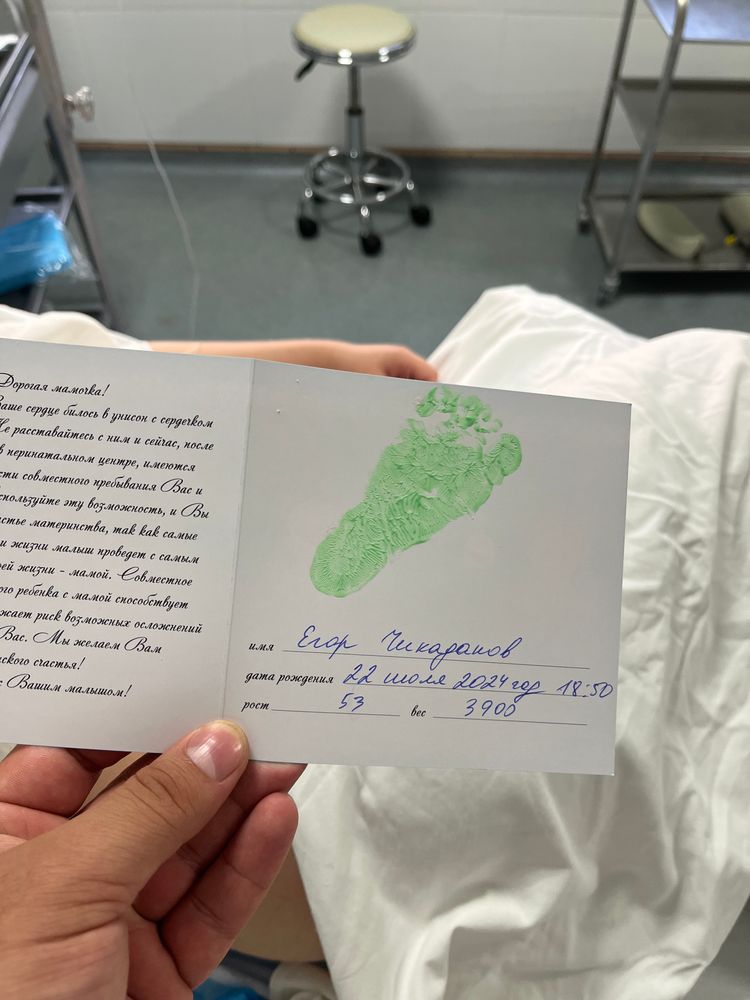 Дорогая мамочка!
Ваше сердце билось в унисон с сердечком
Не расставайтесь с ним и сейчас, после
в перинатальном центре, имеются
сти совместного пребывания Вас и
спользуйте эту возможность, и Вы
стье материнства, так как самые
и жизни малыш проведет с самым
ей жизни - мамой. Совместное
ого ребенка с мамой способствует
жает риск возможных осложнений
Вас. Мы желаем Вам
нского счастья!
с Вашим малышом!
имя Егор Чикаданов
дата рождения 22 июля 2024 год 18:50
рост 53 вес 3900